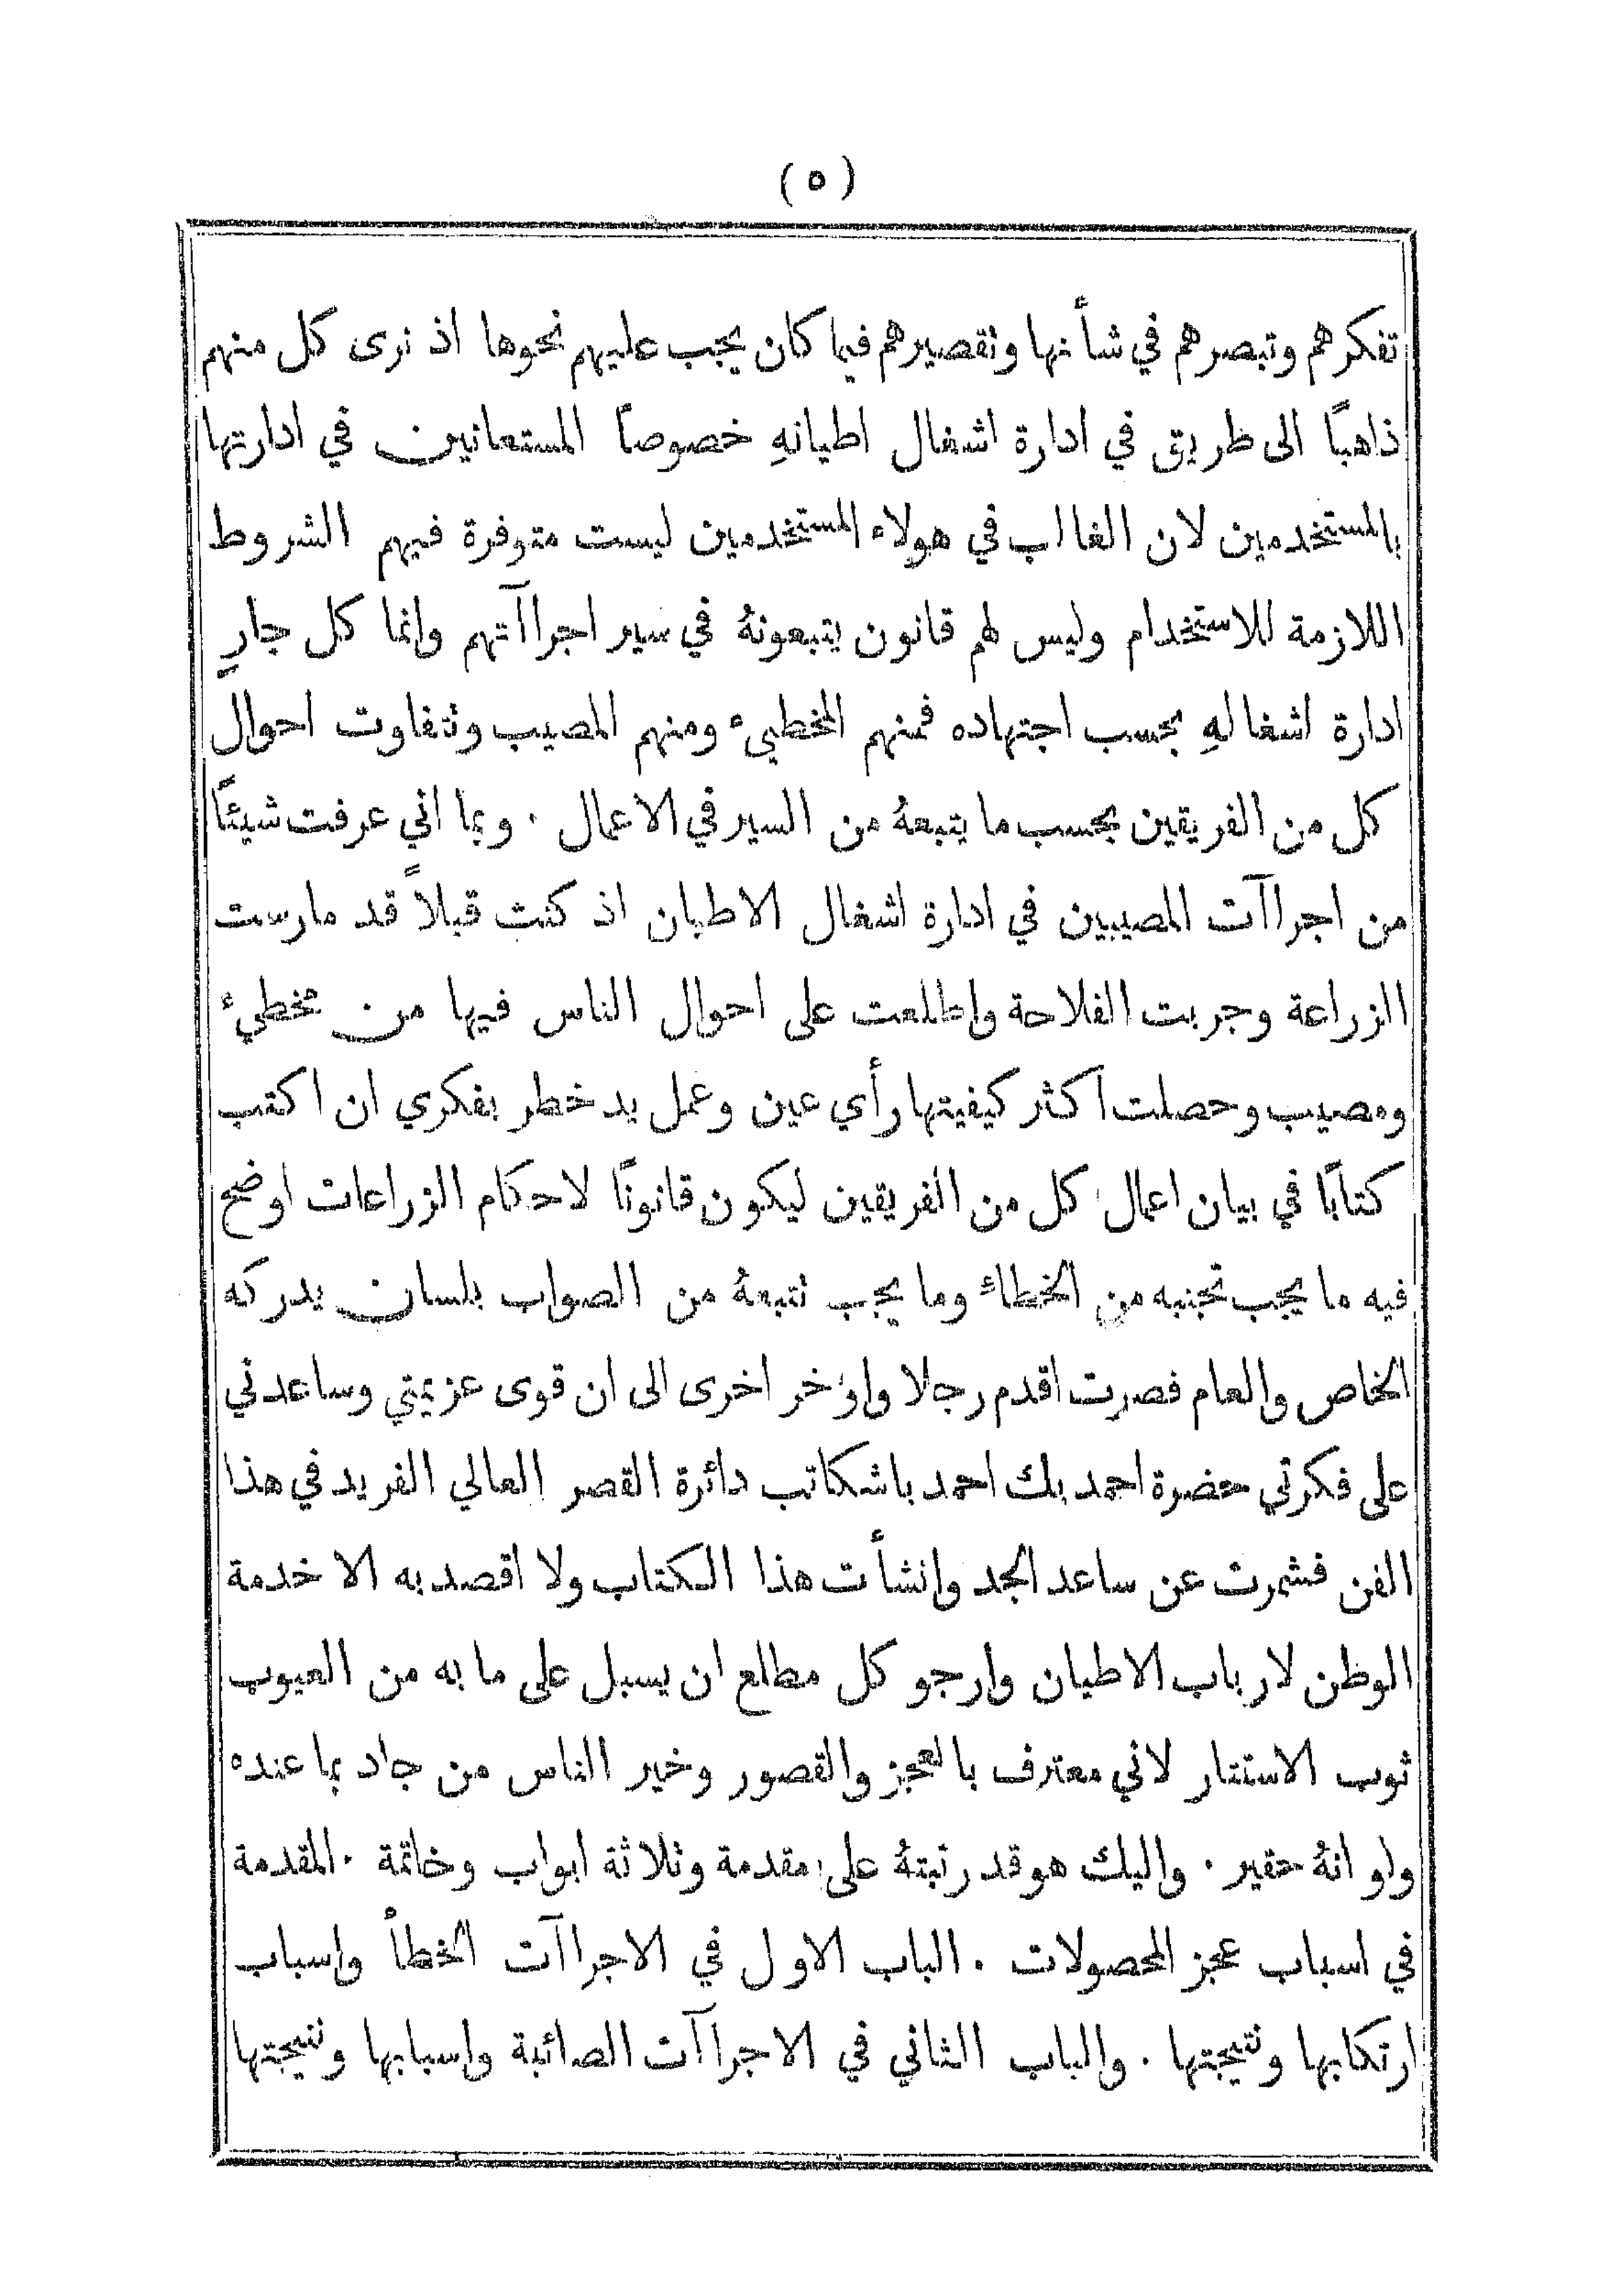 (٥)
تفكرهم وتبصرهم في شأنها وتقصيرهم فيما كان يجب عليهم نحوها اذ نرى كل منهم
ذاهبًا الى طريق في ادارة اشغال اطيانهِ خصوصاً المستعانين في ادارتها
بالمستخدمين لان الغالب في هولاء المستخدمين ليست متوفرة فيهم الشروط
اللازمة للاستخدام وليس لهم قانون يتبعونهُ في سير اجراآتهم وانما كل جارٍ
ادارة اشغالهِ بحسب اجتهاده فمنهم المخطيء ومنهم المصيب وتتفاوت احوال
كل من الفريقين بحسب ما يتبعهُ من السير في الاعمال . وبما اني عرفت شيئًا
من اجراآت المصيبين في ادارة اشغال الاطيان اذ كنت قبلاً قد مارست
الزراعة وجربت الفلاحة واطلعت على احوال الناس فيها من مخطيء
ومصيب وحصلت اكثر كيفيتها رأي عين وعمل يد خطر بفكري ان اكتب
كتابًا في بيان اعمال كل من الفريقين ليكون قانونًا لاحكام الزراعات اوضح
فيه ما يجب تجنبه من الخطاء وما يجب تتبعهُ من الصواب بلسان يدركه
الخاص والعام فصرت اقدم رجلا واؤخر اخرى الى ان قوى عزيمتي وساعدني
على فكرتي حضرة احمد بك احمد باشكاتب دائرة القصر العالي الفريد في هذا
الفن فشمرت عن ساعد الجد وانشأت هذا الكتاب ولا اقصد به الا خدمة
الوطن لارباب الاطيان وارجو كل مطلع ان يسبل على ما به من العيوب
ثوب الاستتار لاني معترف بالعجز والقصور وخير الناس من جاد بما عنده
ولو انهُ حقير . واليك هو قد رتبتهُ على مقدمة وثلاثة ابواب وخاتمة . المقدمة
في اسباب عجز المحصولات . الباب الاول في الاجراآت الخطأ واسباب
ارتكابها ونتيجتها . والباب الثاني في الاجراآت الصائبة واسبابها ونتيجتها